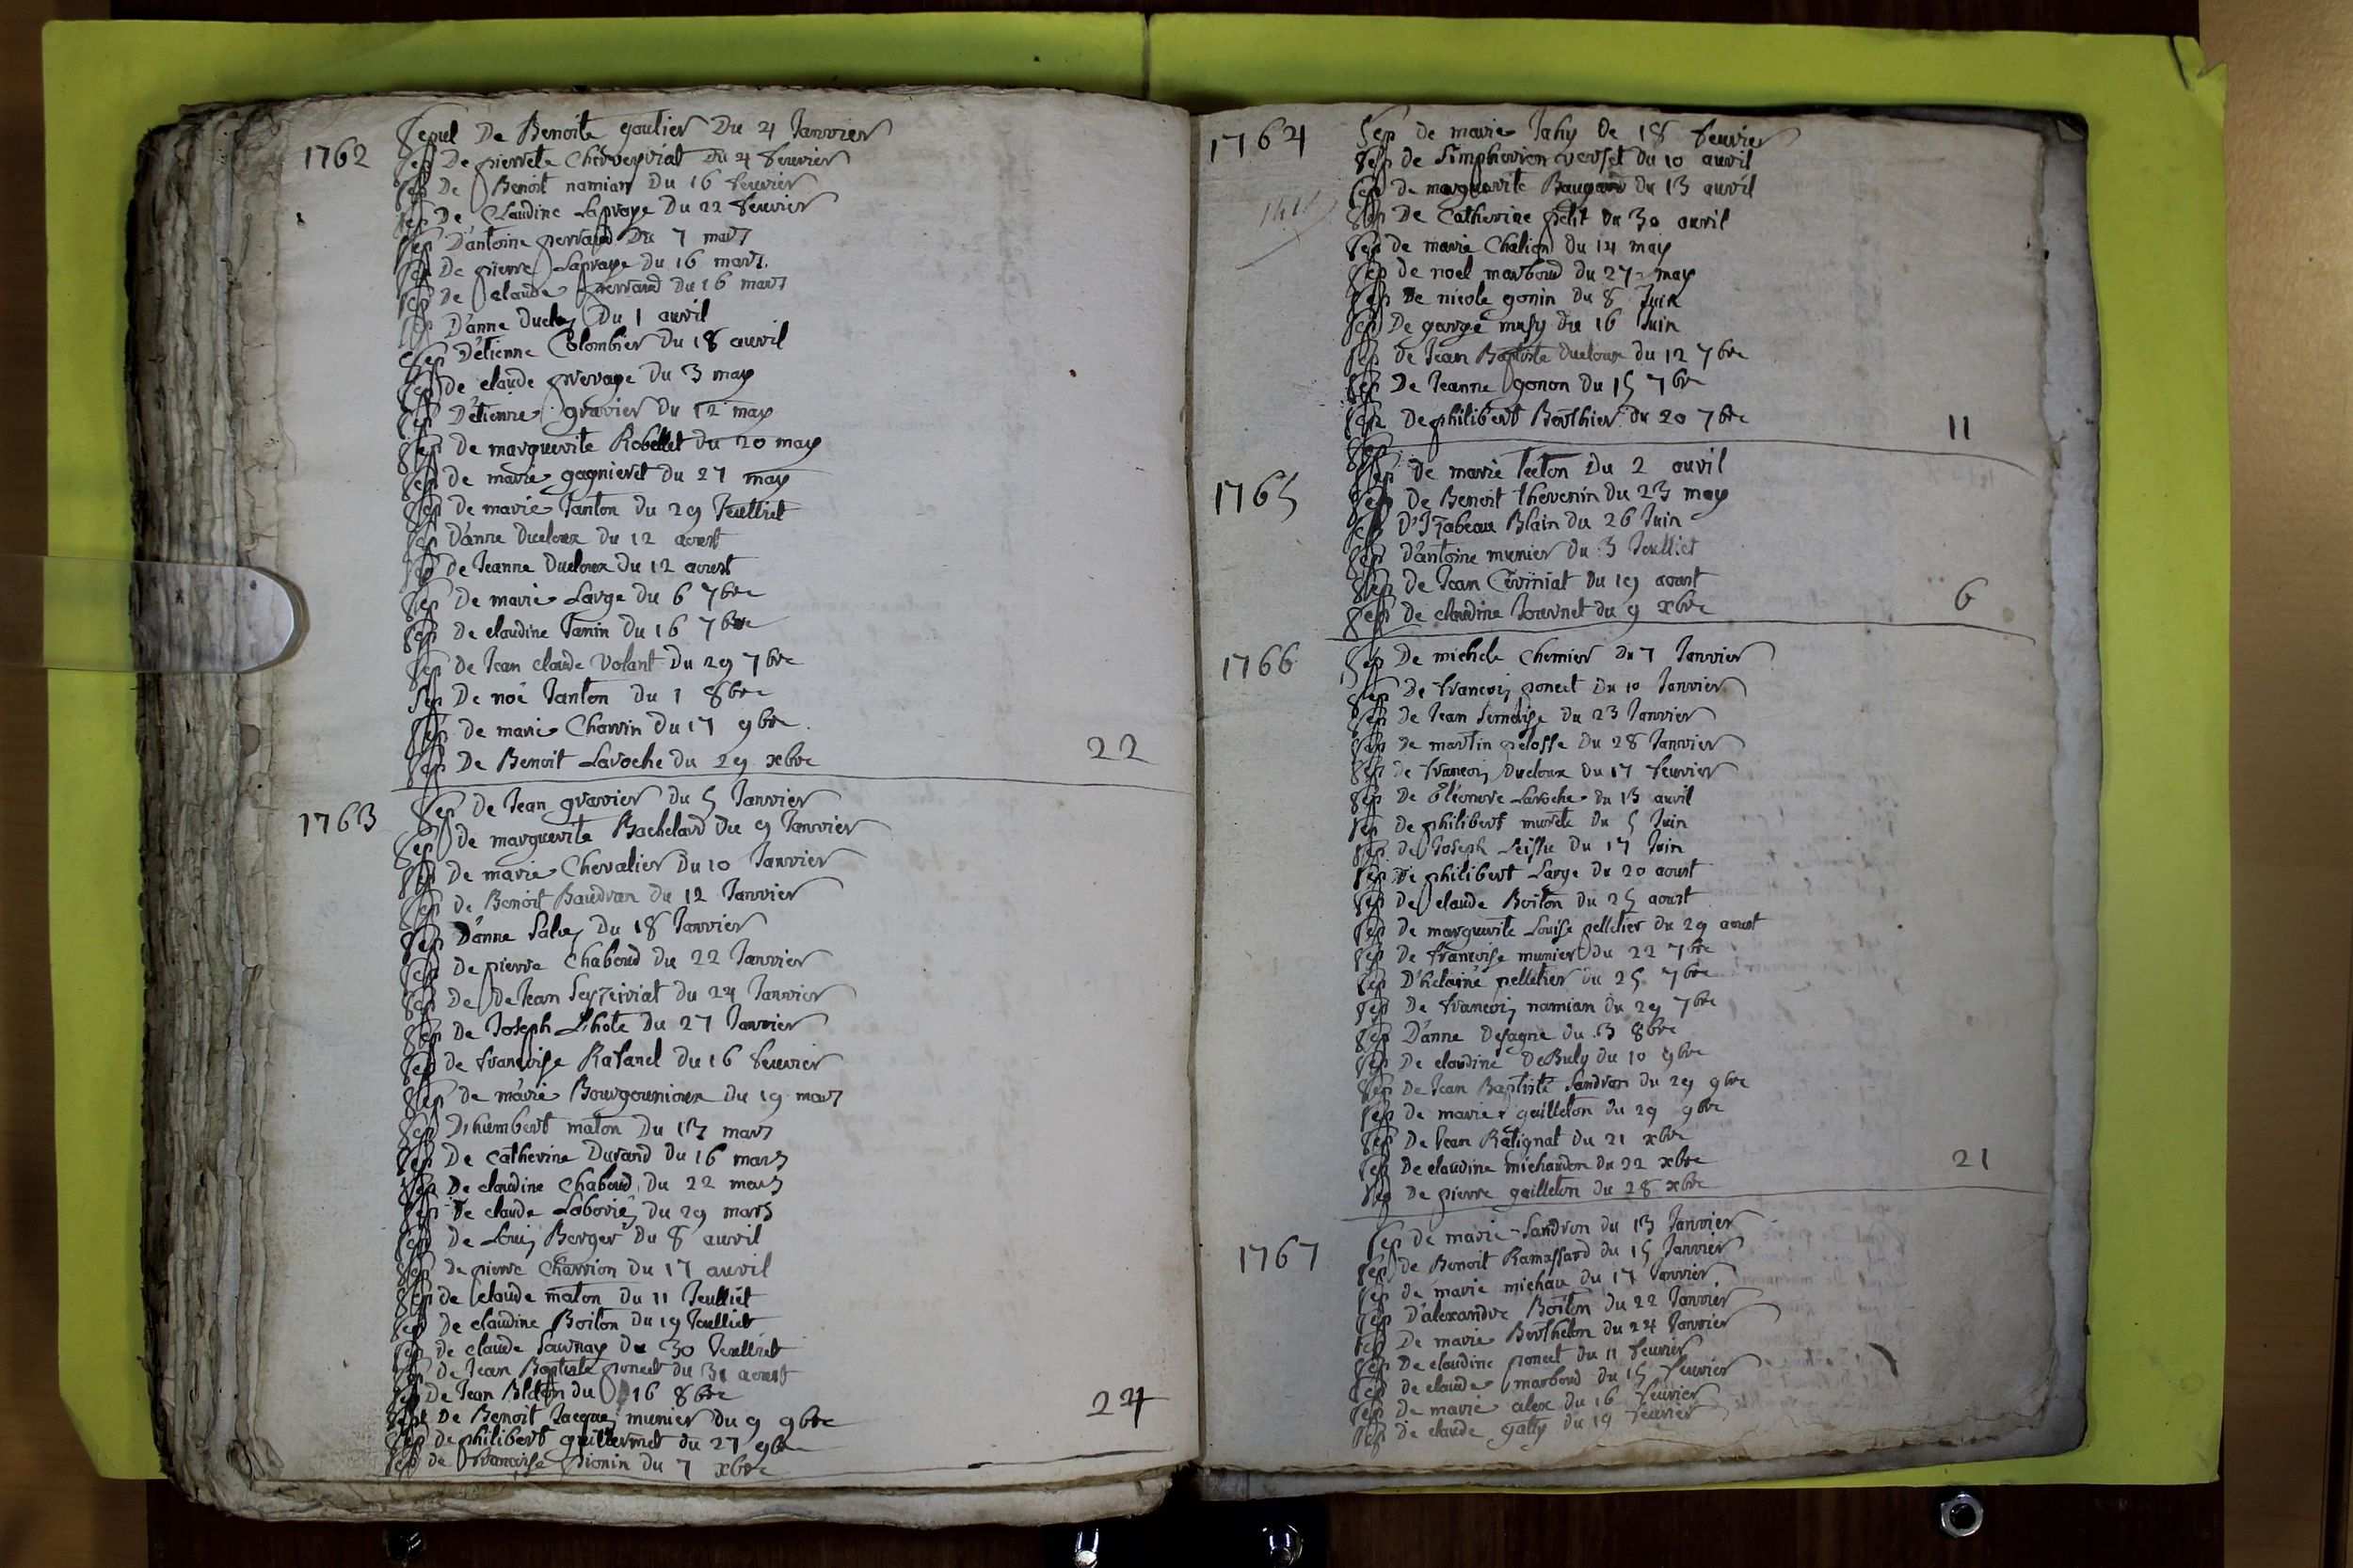 1762 Sepul De Benoite goutier Du 4 Janvier
Sep De pierrete Cherveyriat Du 4 fevrier
Sep De Benoit namian Du 16 fevrier
Sep De Claudine Lapraye Du 22 fevrier
Sep D'antoine perraud Du 7 mars
Sep De pierre Lapraye du 16 mars
Sep de claude perraud du 16 mars
Sep D'anne Duclos Du 1 auvil
Sep D'étienne Colombier Du 18 auvil
Sep de claude prevaye du 3 may
Sep D'étienne gravier du 12 may
Sep de marguerite Robellet du 20 may
Sep de marie gagnieret du 27 may
Sep de marie Janton du 29 Jeulliet
Sep D'anne Ducloux du 12 aoust
Sep de Jeanne Ducloux du 12 aoust
Sep De marie Large du 6 7bre
Sep De claudine Janin du 16 7bre
Sep de Jean claude Volant du 29 7bre
Sep De noé Janton du 1 8bre
Sep de marie Charvin du 17 9bre
Sep De Benoit Laroche du 29 xbre 22
1763 Sep de Jean gravier du 5 Janvier
Sep de marguerite Bachelard du 9 Janvier
Sep de marie Chevalier du 10 Janvier
Sep de Benoit Baudran du 12 Janvier
Sep D'anne Salis du 18 Janvier
Sep de pierre Chaboud du 22 Janvier
Sep de De Jean Seyzeiriat du 24 Janvier
Sep de Joseph Lhote du 27 Janvier
Sep de françoise Ratanel du 16 fevrier
Sep de marie Bourgounioux du 19 mars
Sep D'humbert maton du 13 mars
Sep De catherine Durand du 16 mars
Sep De claudine Chaboud du 22 mars
Sep De claude Laboriés du 29 mars
Sep De Louis Berger du 8 auvil
Sep de pierre Charrion du 17 auvil
Sep de claude maton du 11 Jeulliet
Sep de claudine Boiton du 19 Jeulliet
Sep de claude Saunay du 30 Jeulliet
Sep de Jean Baptiste poncet du 31 aoust
Sep De Jean Bleton du 16 8bre
Sep De Benoit Jacques munier du 9 9bre 24
Sep de philibert guillermet du 27 9bre
Sep de françoise pionin du 7 xbre
1764 Sep de marie Jahy De 18 fevrier
Sep de Simphorien verset du 10 auvil
Sep de marguerite Baugard du 13 auvil
Sep De Catherine petit du 30 auvil
Sep de marie Chalion du 14 may
Sep de noel marboud du 27 may
Sep De nicole gonin du 8 Juin
Sep De george musy du 16 Juin
Sep De Jean Baptiste Ducloux du 12 7bre
Sep De Jeanne gonon du 15 7bre
Sep De philibert Berthier du 20 7bre 11
Sep
1765 Sep de marie Teton du 2 auvil
Sep De Benoit Thevenin du 23 may
Sep D'Izabeau Blain du 26 Juin
Sep D'antoine munier du 3 Jeulliet
Sep de Jean Cÿviniat du 19 aoust
Sep de claudine Journet du 9 xbre 6
1766 Sep De michele Chemier du 7 Janvier
Sep De françois poncet Du 10 Janvier
Sep de Jean Semoise du 23 Janvier
Sep de martin pelosse du 28 Janvier
Sep de françois Ducloux du 17 fevrier
Sep De Eléonore Laroche du 13 auvil
Sep de philibert murete du 5 Juin
Sep de Joseph Leissu du 17 Juin
Sep de philibert Large du 20 aoust
Sep de claude Boiton du 25 aoust
Sep de marguerite Louise pelletier du 29 aoust
Sep de françoise munier du 22 7bre
Sep D'helaine pelletier du 25 7bre
Sep De françois namian du 29 7bre
Sep D'anne Defagne du 3 8bre
Sep De claudine DeBuly du 10 9bre
Sep De Jean Baptiste Sandron du 29 9bre
Sep de marie gailleton du 29 9bre
Sep De Jean Ratignat du 21 xbre
Sep De claudine michaudon du 22 xbre 21
Sep De pierre gailleton du 28 xbre
1767 Sep de marie Sandron du 13 Janvier
Sep de Benoit Ramassard du 15 Janvier
Sep de marie michau du 17 Janvier
Sep D'alexandre Boiton du 22 Janvier
Sep De marie Berthelon du 24 Janvier
Sep De claudine poncet du 11 fevrier
Sep de claude marboud du 15 fevrier
Sep de marie alex du 16 fevrier
Sep de claude gatty du 19 fevrier